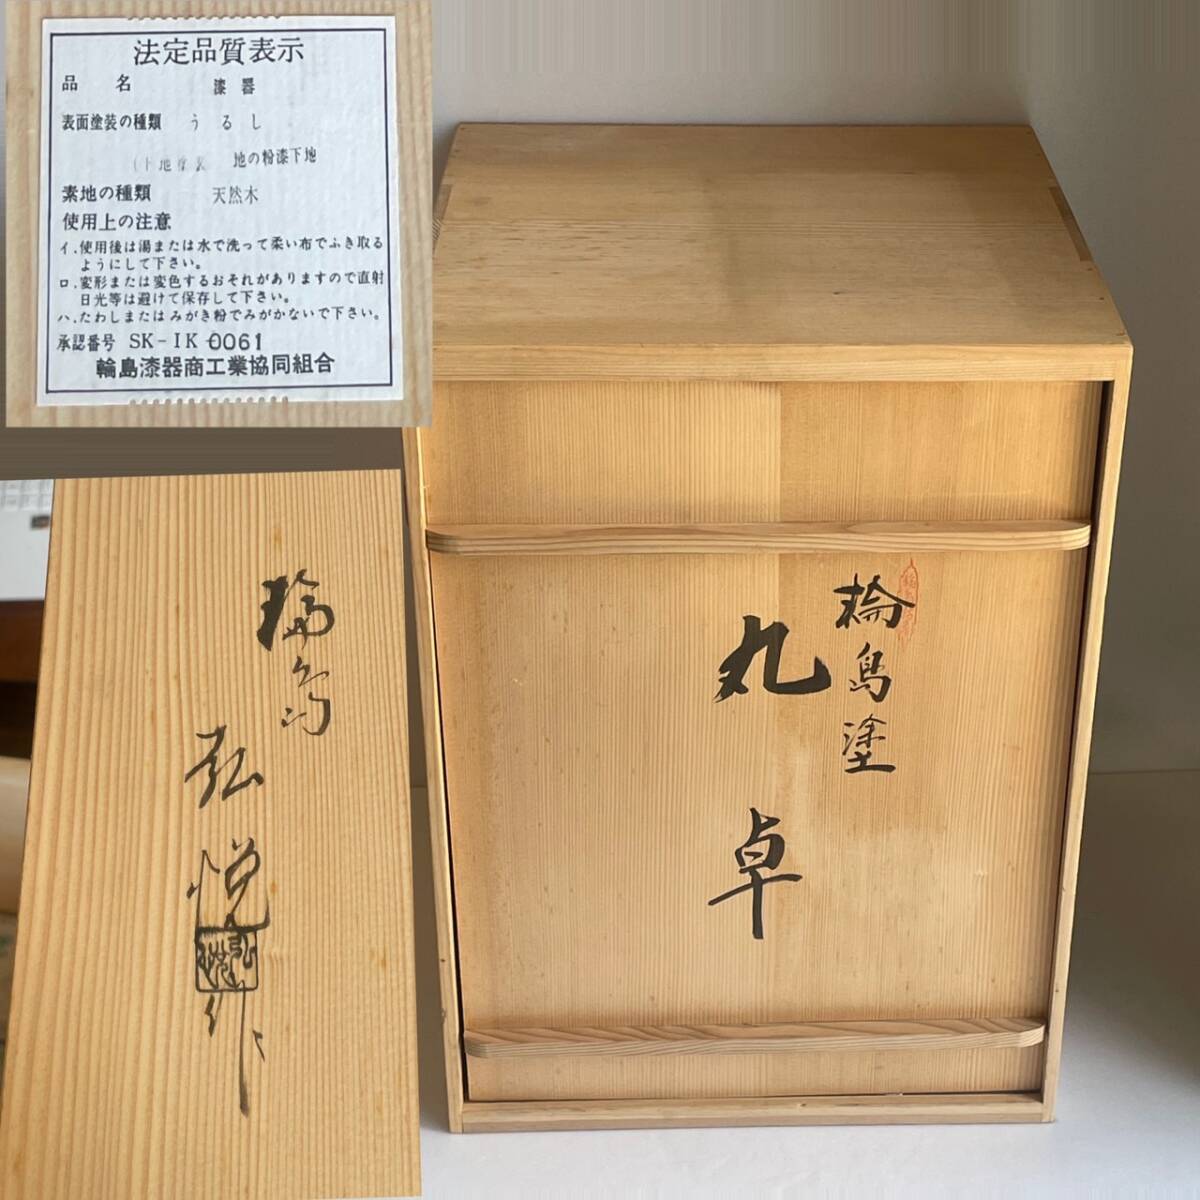 法定品質表示
品名 漆器
表面塗装の種類 うるし
(下地塗装 地の粉漆下地
素地の種類 天然木
使用上の注意
イ.使用後は湯または水で洗って柔い布でふき取る
ようにして下さい。
ロ.変形または変色するおそれがありますので直射
日光等は避けて保存して下さい。
ハ.たわしまたはみがき粉でみがかないで下さい。
承認番号 SK-IK 0061
輪島漆器商工業協同組合
輪島塗
丸卓
輪島
弘悦
作